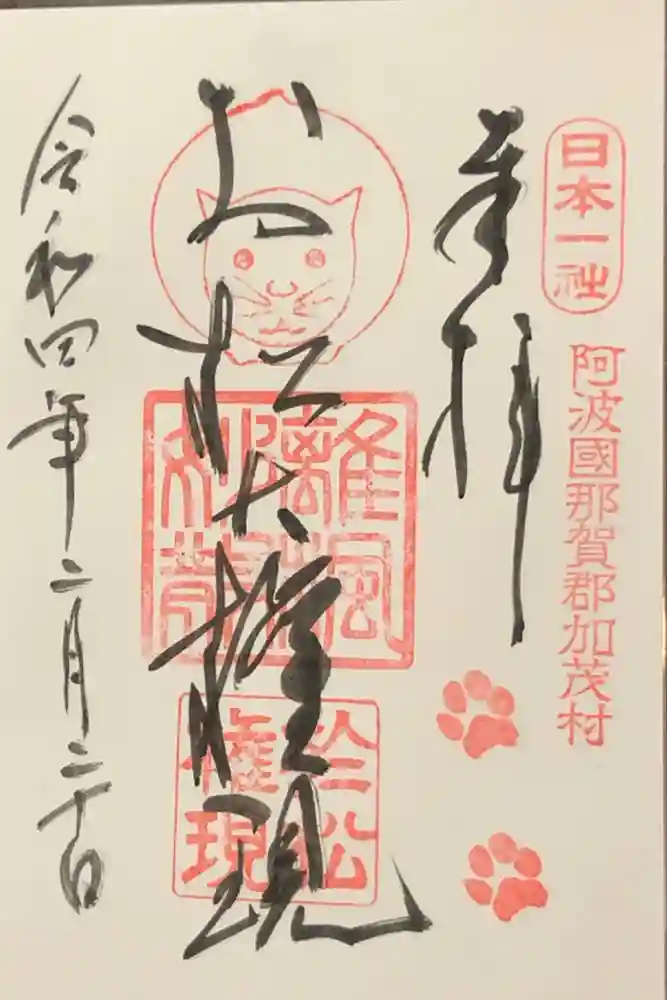 日本一社
阿波國那賀郡加茂村
奉拝
お松大権現
於松
権現
令和四年二月二十日